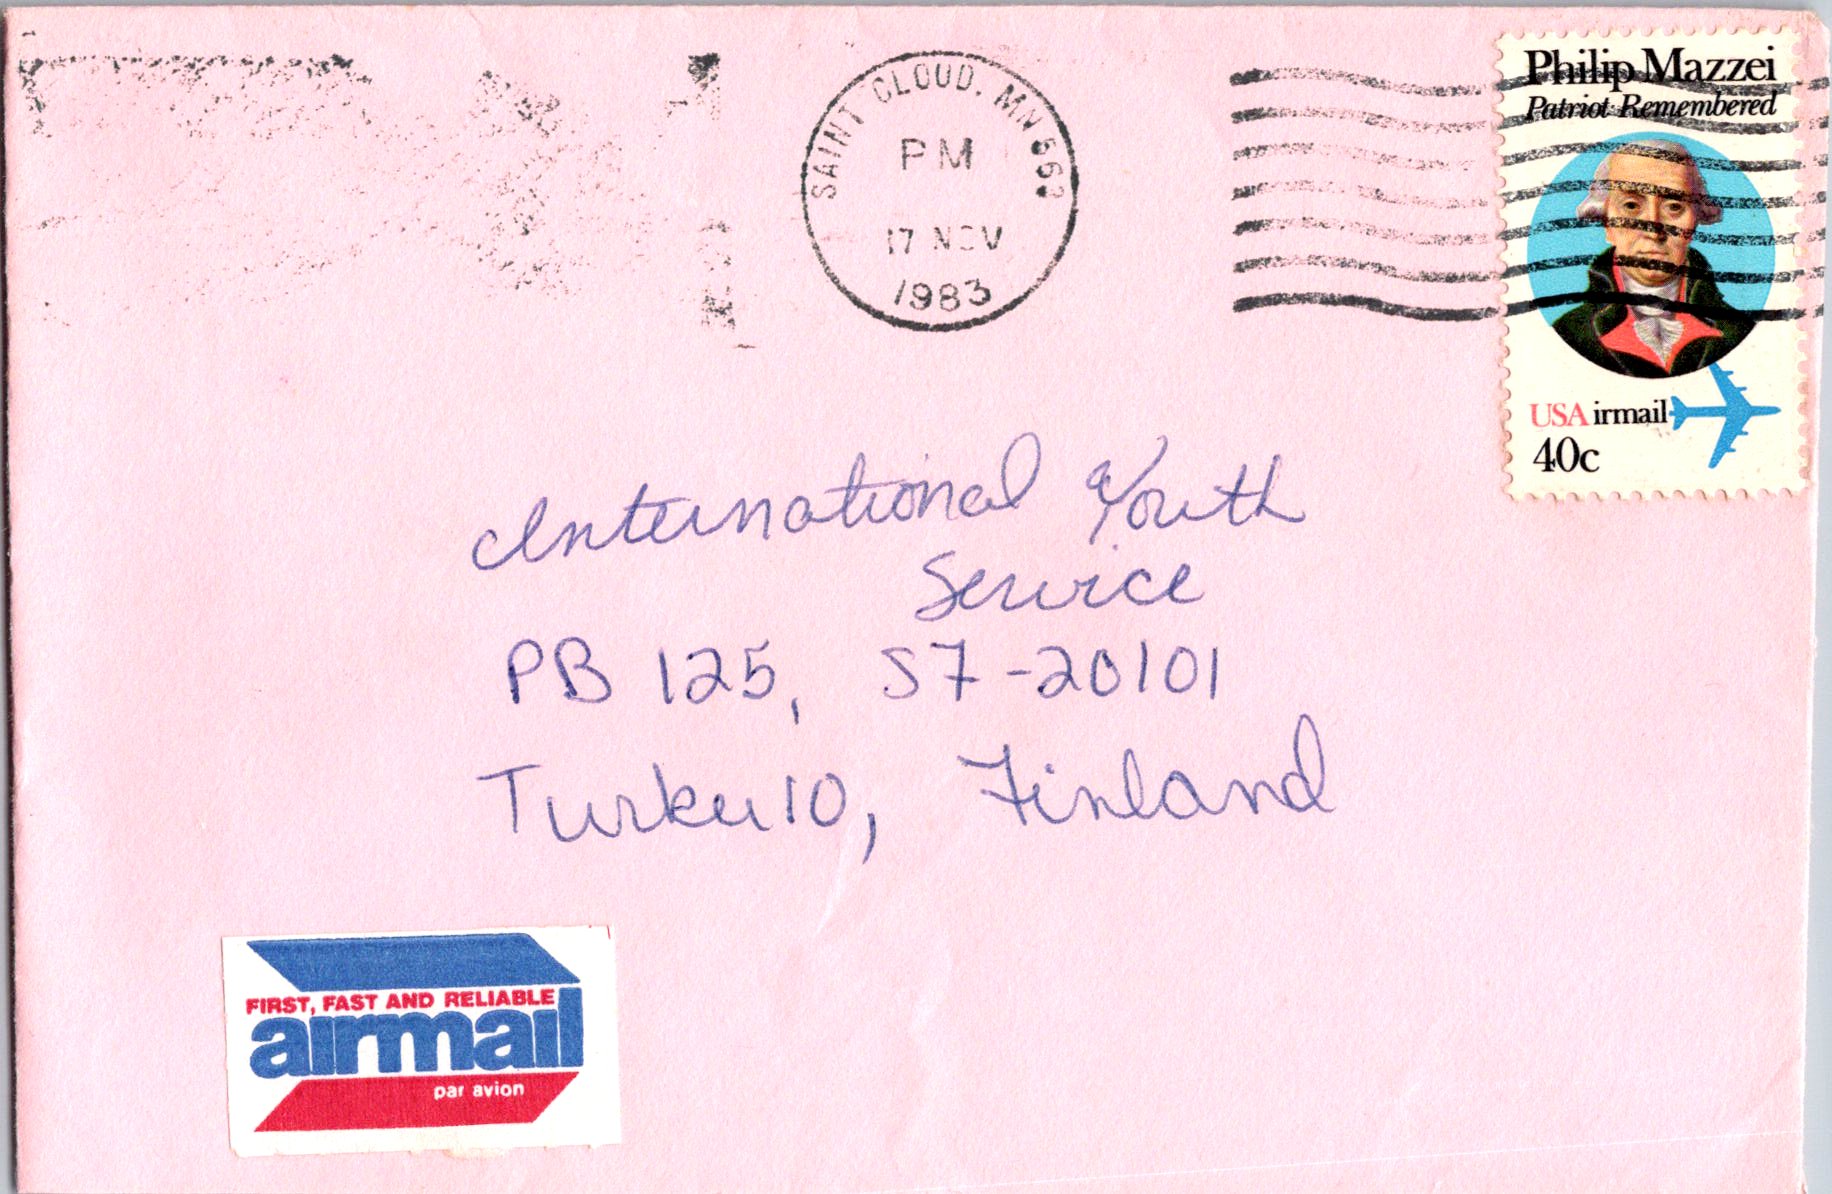 SAINT CLOUD, MN 563
PM
17 NOV
1983
Philip Mazzei
Patriot Remembered
USAirmail
40c
International Youth
Service
PB 125, S7-20101
Turku 10, Finland
FIRST, FAST AND RELIABLE
airmail
par avion